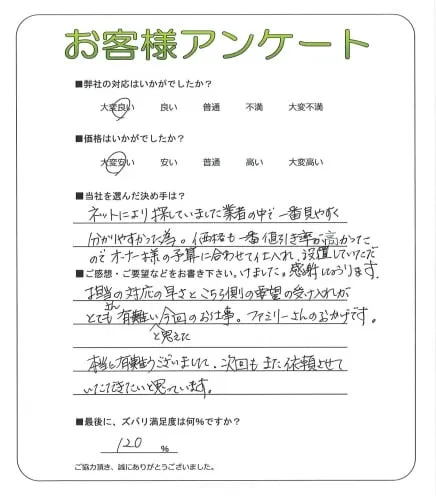 お客様アンケート
■弊社の対応はいかがでしたか?
大変良い 良い 普通 不満 大変不満
■価格はいかがでしたか?
大変安い 安い 普通 高い 大変高い
■当社を選んだ決め手は?
ネットにより探していました業者の中で一番見やすく
分かりやすかった為。価格も一番値引き率が高かった
のでオーナー様の予算に合わせて仕入れ、設置していただ
けました。感謝しております。
■ご感想・ご要望などをお書き下さい。
担当さんの対応の早さとこちら側の要望の受け入れが
とても有難い今回のお仕事。ファミリーさんのおかげです。
と思えた
本当に有難うございました、次回もまた依頼させて
いただきたいと思っています。
■最後に、ズバリ満足度は何%ですか?
120 %
ご協力頂き、誠にありがとうございました。